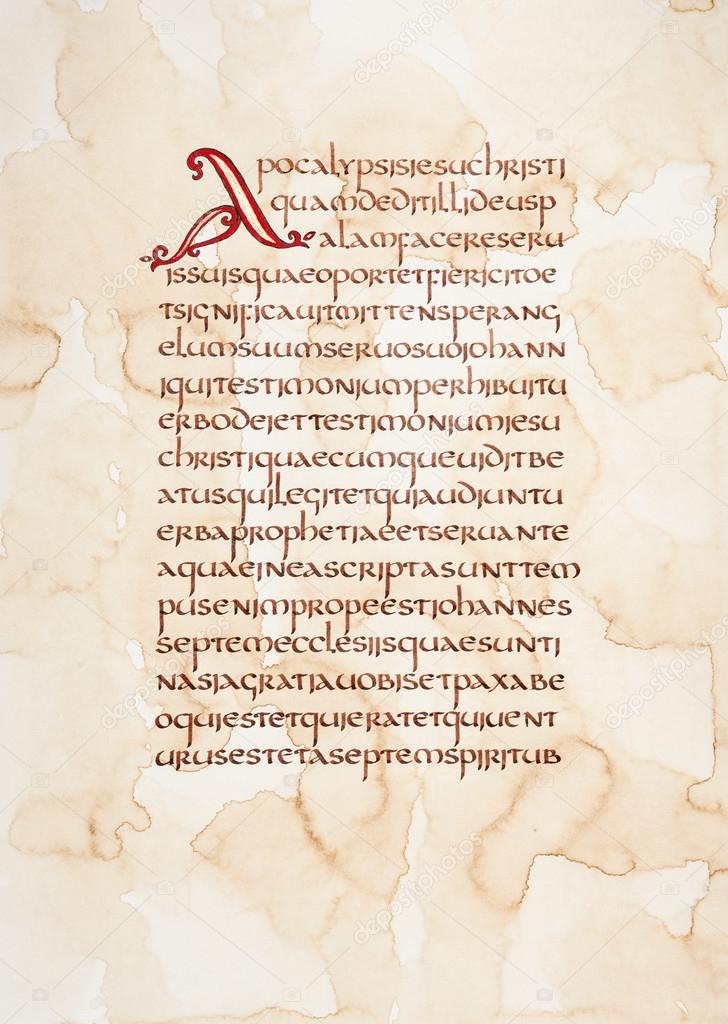 Apocalypsisiesuchristi
quamdeditillideusp
alamfacereseru
issuisquaeoportetfiericitoe
tsignificauitmittensperang
elumsuumseruosuoiohann
iquitestimoniumperhibuitu
erbodeiettestimoniumiesu
christiquaecumqueuiditbe
atusquilegitetquiaudiuntu
erbaprophetiaeetseruante
aquaeineascriptasunttem
pusenimpropeestiohannes
septemecclesiisquaesunti
nasiagratiauobisetpaxabe
oquiestetquieratetquiuent
urusestetaseptemspiritub
depositphotos